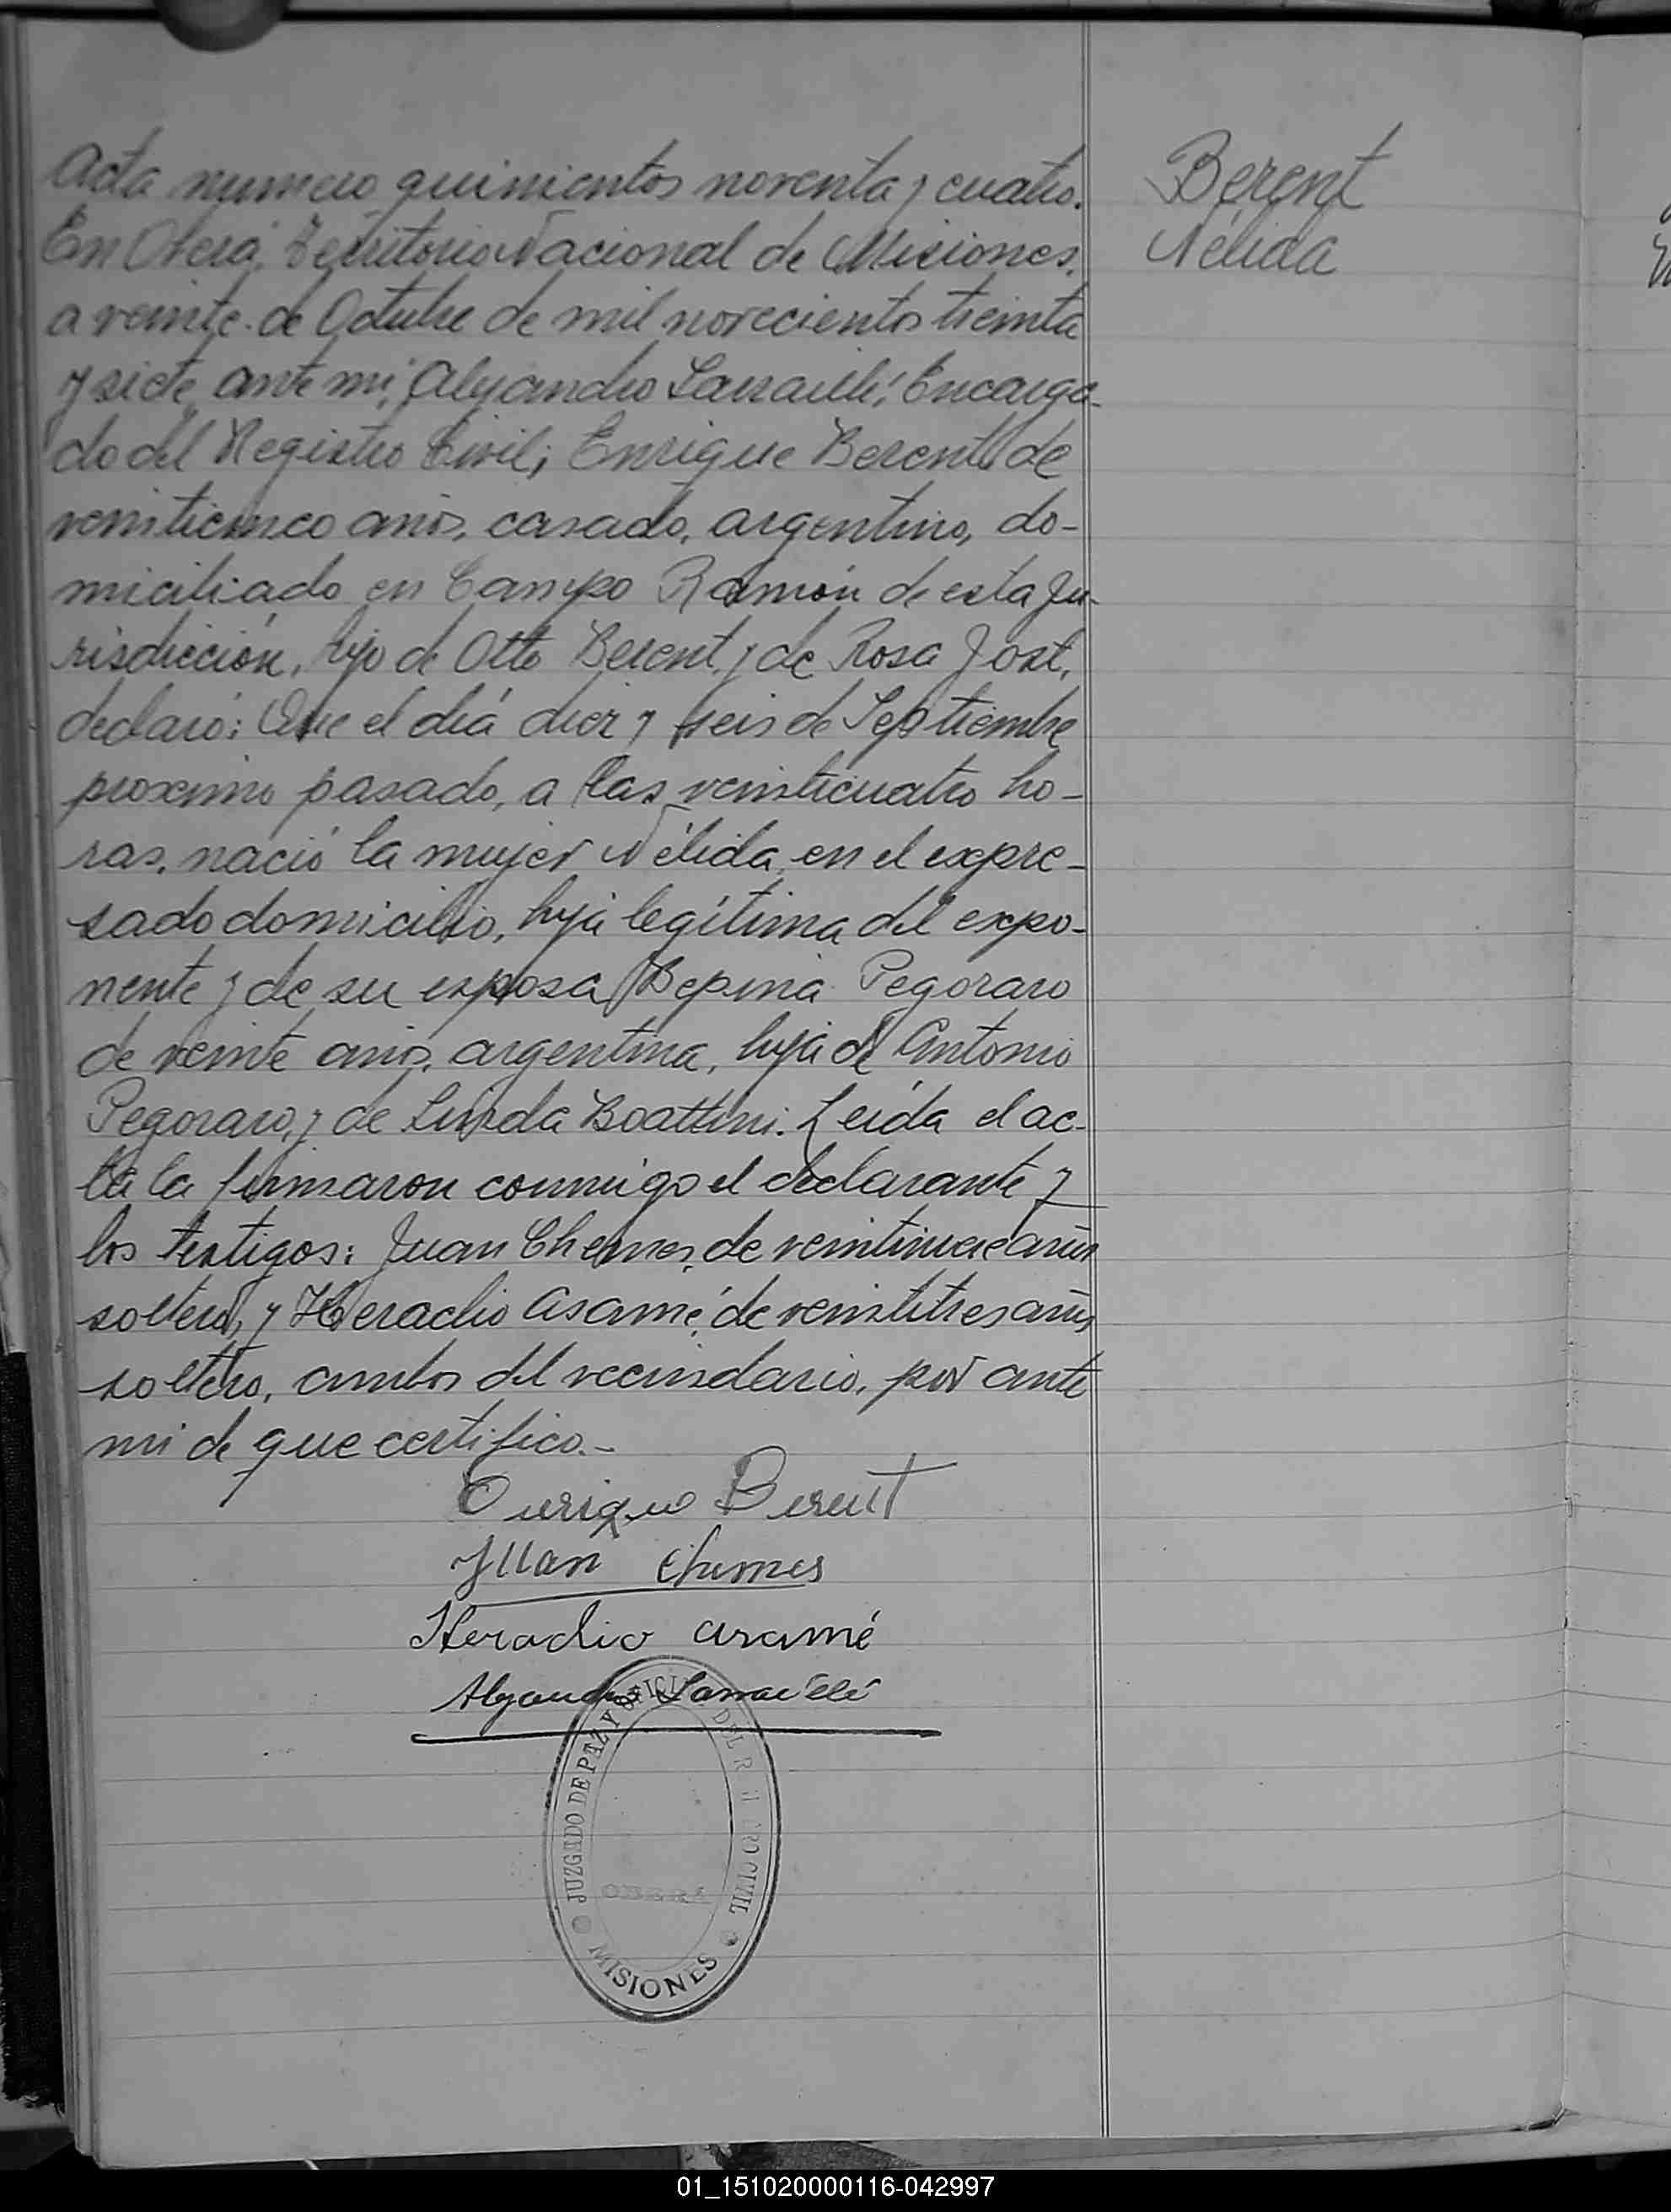 Acta numero quinientos noventa y cuatro.
En Oberá, Territorio Nacional de Misiones,
a veinte de Octubre de mil novecientos treinta
y siete, ante mí, Alejandro Larraillé, Encarga-
do del Registro Civil; Enrique Berent de
veinticinco años, casado, argentino, do-
miciliado en Campo Ramón de esta Ju-
risdicción, hijo de Otto Berent y de Rosa Jost,
declaró: Que el día diez y seis de Septiembre
proximo pasado, a las veinticuatro ho-
ras, nació la mujer Nélida, en el expre-
sado domicilio, hija legítima del expo-
nente y de su esposa Bepina Pegoraro
de veinte años, argentina, hija de Antonio
Pegoraro, y de Linda Boattini. Leída el ac-
ta la firmaron conmigo el declarante y
los testigos: Juan Chemes, de veintinueve años
soltero, y Heraclio Asamé, de veintitres años,
soltero, ambos del vecindario, por ante
mi de que certifico.-
Enrique Berent
Juan Chemes
Heraclio Asamé
Alejandro Larraillé
JUZGADO DE PAZ Y OFICINA DEL REGISTRO CIVIL
OBERÁ
MISIONES
Berent
Nélida
01_151020000116-042997